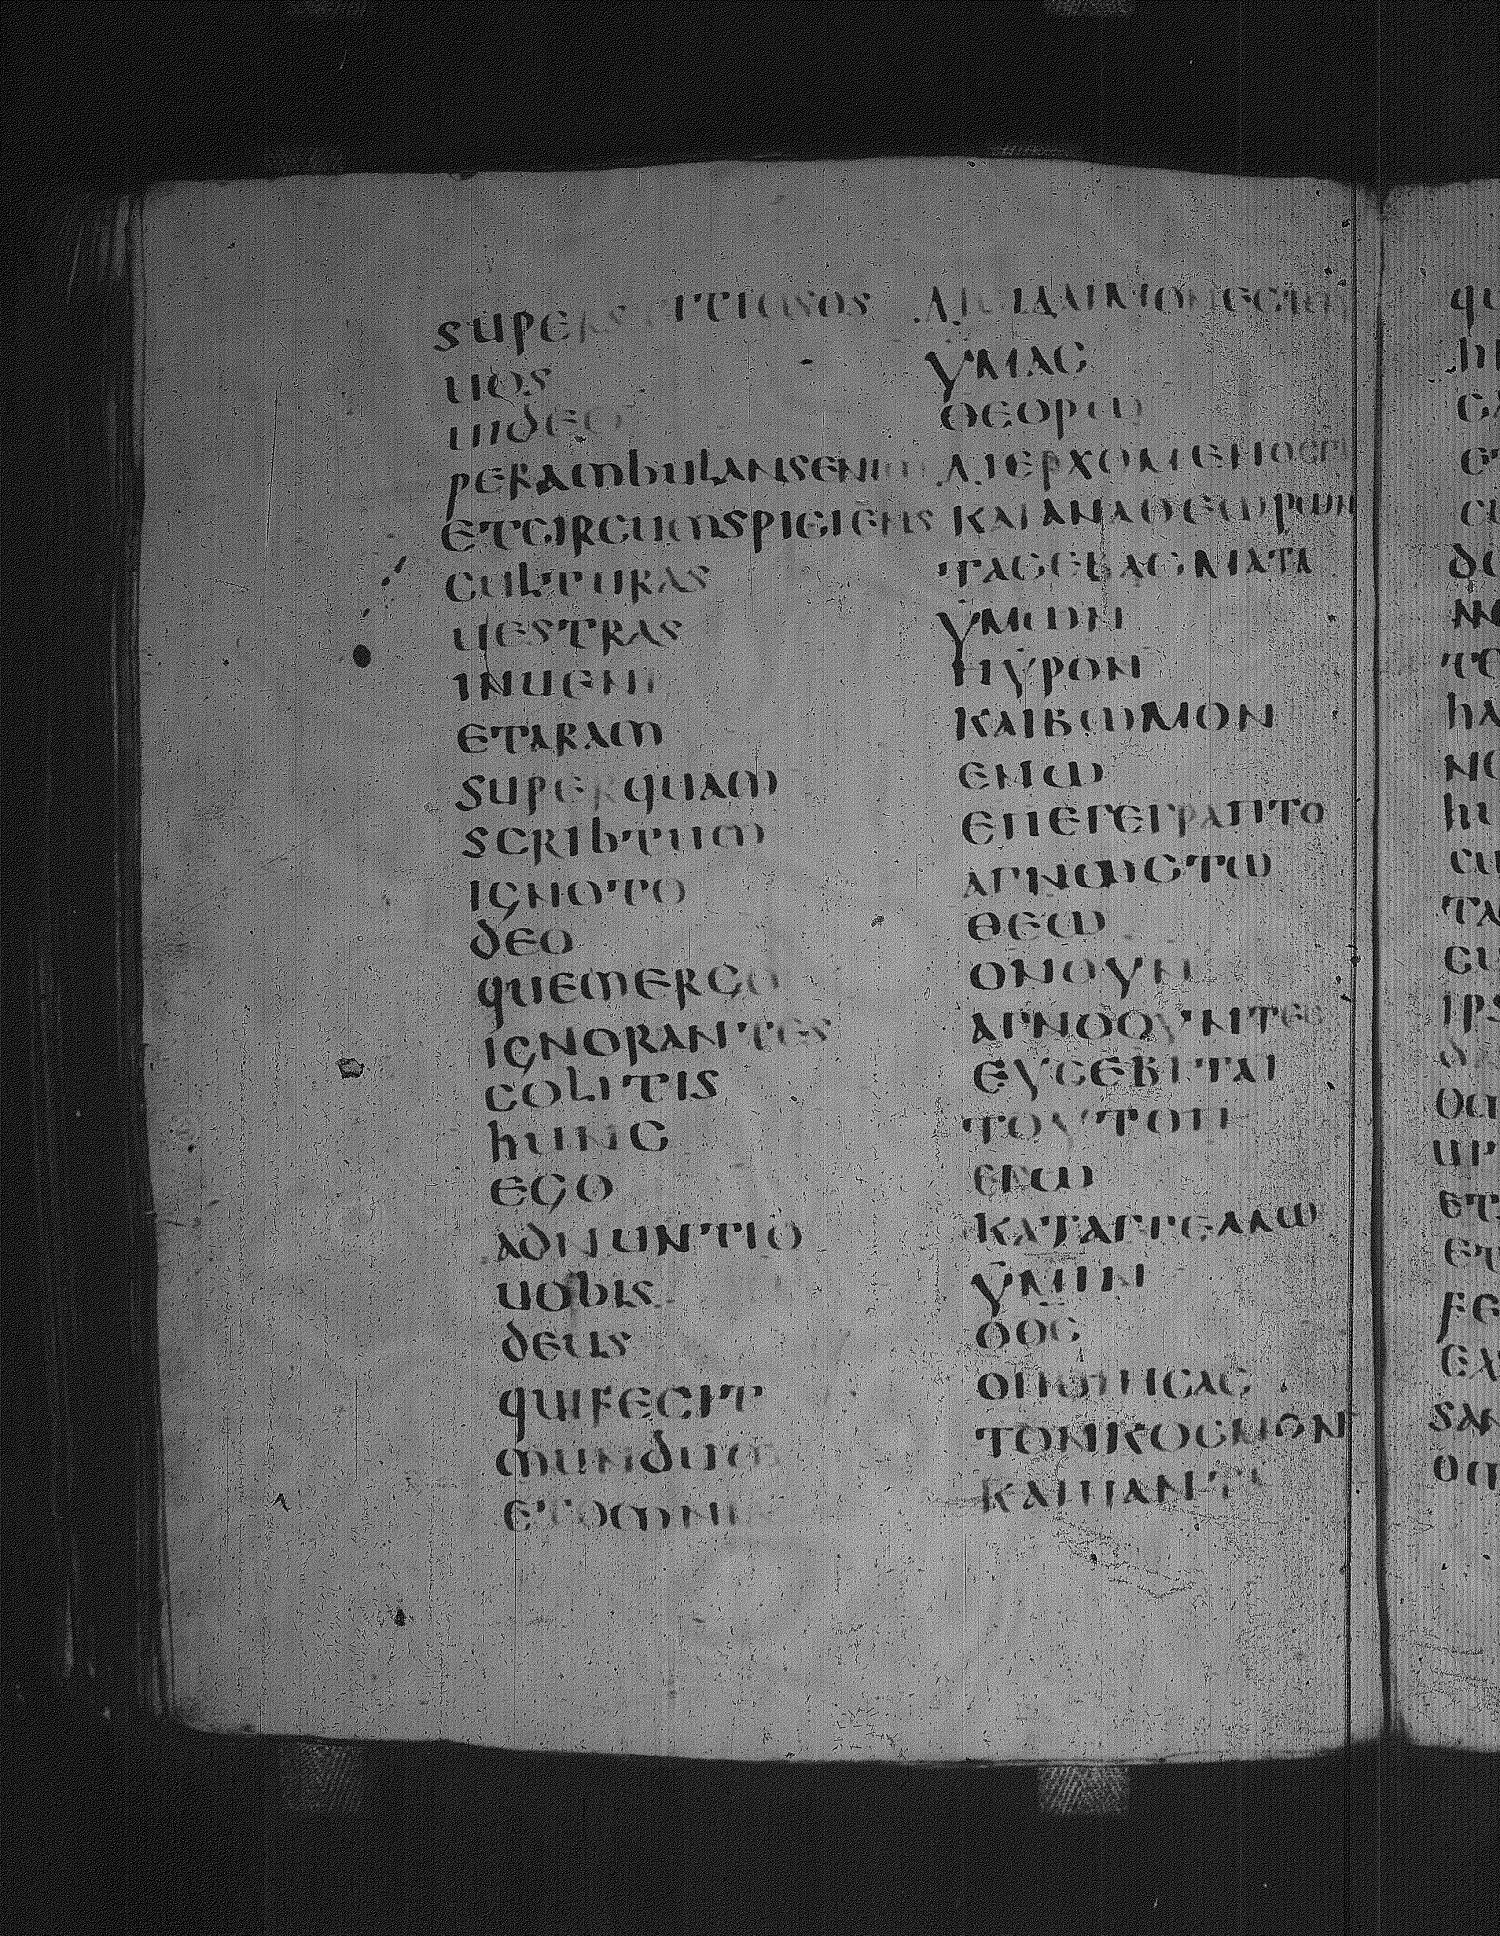 superstitiosos
uos
uideo
perambulansenim
etcircumspiciens
culturas
uestras
inueni
etaram
superquam
scribtum
ignoto
deo
quemergo
ignorantes
colitis
hunc
ego
adnuntio
uobis
deus
quifecit
mundum
etomni
ΔΙCΙΔΑΙΜΟΝΕCΤΕΡ
ΥΜΑC
ΘΕΟΡΩ
ΔΙΕΡΧΟΜΕΝΟCΓΑΡ
ΚΑΙΑΝΑΘΕΩΡΩΝ
ΤΑCΕΒΑCΜΑΤΑ
ΥΜΩΝ
ΗΥΡΟΝ
ΚΑΙΒΩΜΟΝ
ΕΝΩ
ΕΠΕΓΕΓΡΑΠΤΟ
ΑΓΝΩCΤΩ
ΘΕΩ
ΟΝΟΥΝ
ΑΓΝΟΟΥΝΤΕC
ΕΥCΕΒΙΤΑΙ
ΤΟΥΤΟΝ
ΕΓΩ
ΚΑΤΑΓΓΕΛΛΩ
ΥΜΙΝ
ΟΘC
ΟΠΟΙΗCΑC
ΤΟΝΚΟCΜΟΝ
ΚΑΙΠΑΝΤΑ